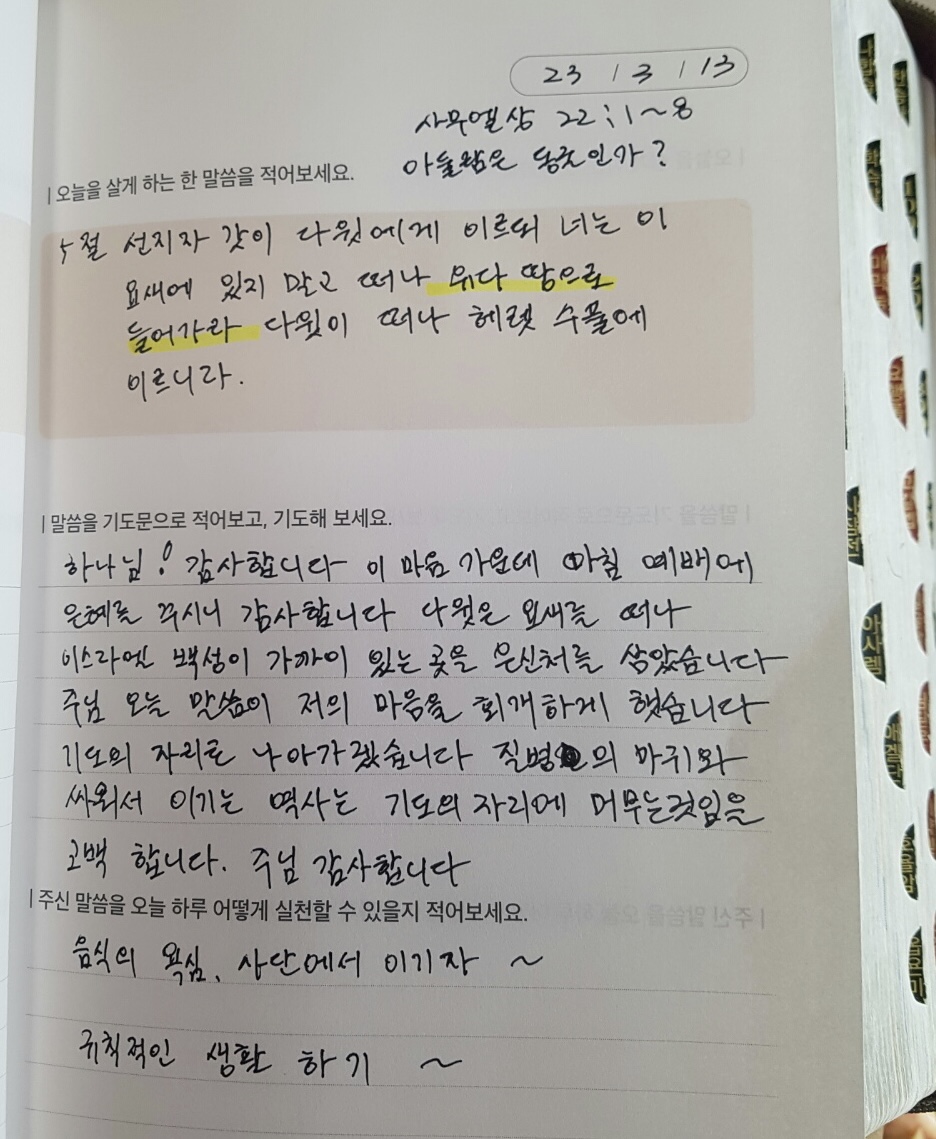 23 / 3 / 13
사무엘상 22:1~8
아둘람은 동굿인가?
| 오늘을 살게 하는 한 말씀을 적어보세요.
5절 선지자 갓이 다윗에게 이르되 너는 이
요새에 있지 말고 떠나 유다 땅으로
들어가라 다윗이 떠나 헤렛 수풀에
이르니라.
| 말씀을 기도문으로 적어보고, 기도해 보세요.
하나님! 감사합니다 이 마음 가운데 아침 예배에
은혜를 주시니 감사합니다 다윗은 요새를 떠나
이스라엘 백성이 가까이 있는 곳을 은신처를 삼았습니다
주님 오늘 말씀이 저의 마음을 회개하게 했습니다
기도의 자리로 나아가겠습니다 질병의 마귀와
싸워서 이기는 역사는 기도의 자리에 머무는것임을
고백 합니다. 주님 감사합니다
| 주신 말씀을 오늘 하루 어떻게 실천할 수 있을지 적어보세요.
음식의 욕심, 사단에서 이기자 ~
규칙적인 생활 하기 ~